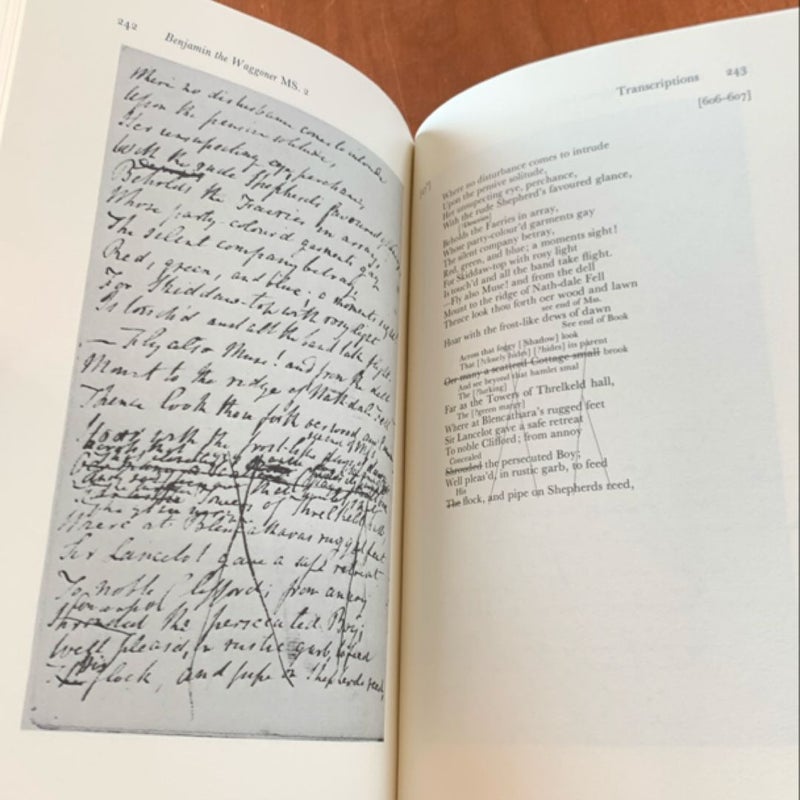 242
Benjamin the Waggoner MS. 2
Where no disturbance comes to intrude
Upon the pensive solitude,
Her unsuspecting eye, perchance,
With the rude Shepherd's favoured glance
Beholds the Faeries in array,
Whose party-coloured garments gay
The silent company betray,
Red, green, and blue; a moments sight
For Skiddaw-top with rosy light
Is touch'd and all the band take flight.
—Fly also Muse! and from the dell
Mount to the ridge of Nath-dale Fell
Thence look thou forth oer wood and lawn
Hoar with the frost-like dews of dawn
Towers of Threlkeld hall,
Where at Blencathara's rugged feet
Sir Lancelot gave a safe retreat
To noble Clifford; from annoy
Shrouded the persecuted Boy;
Well pleased, in rustic garb, to feed
His
flock, and pipe on Shepherds reed,
Transcriptions 243
[606–607]
Where no disturbance comes to intrude
Upon the pensive solitude,
Her unsuspecting eye, perchance,
With the rude Shepherd's favoured glance,
Beholds the Faeries in array,
Whose party-colour'd garments gay
The silent company betray,
Red, green, and blue; a moments sight!
For Skiddaw-top with rosy light
Is touch'd and all the band take flight.
—Fly also Muse! and from the dell
Mount to the ridge of Nath-dale Fell
Thence look thou forth oer wood and lawn
see end of Mss.
Hoar with the frost-like dews of dawn
See end of Book
Across that foggy [Shadow] look
That [?closely hides] [?hides] its parent brook
Oer many a scattered Cottage small
And see beyond that hamlet smal
The [?lurking]
Far as the Towers of Threlkeld hall,
The [?green mazy]
Where at Blencathara's rugged feet
Sir Lancelot gave a safe retreat
To noble Clifford; from annoy
Concealed
Shrouded the persecuted Boy;
Well pleas'd, in rustic garb, to feed
His
The flock, and pipe on Shepherds reed,